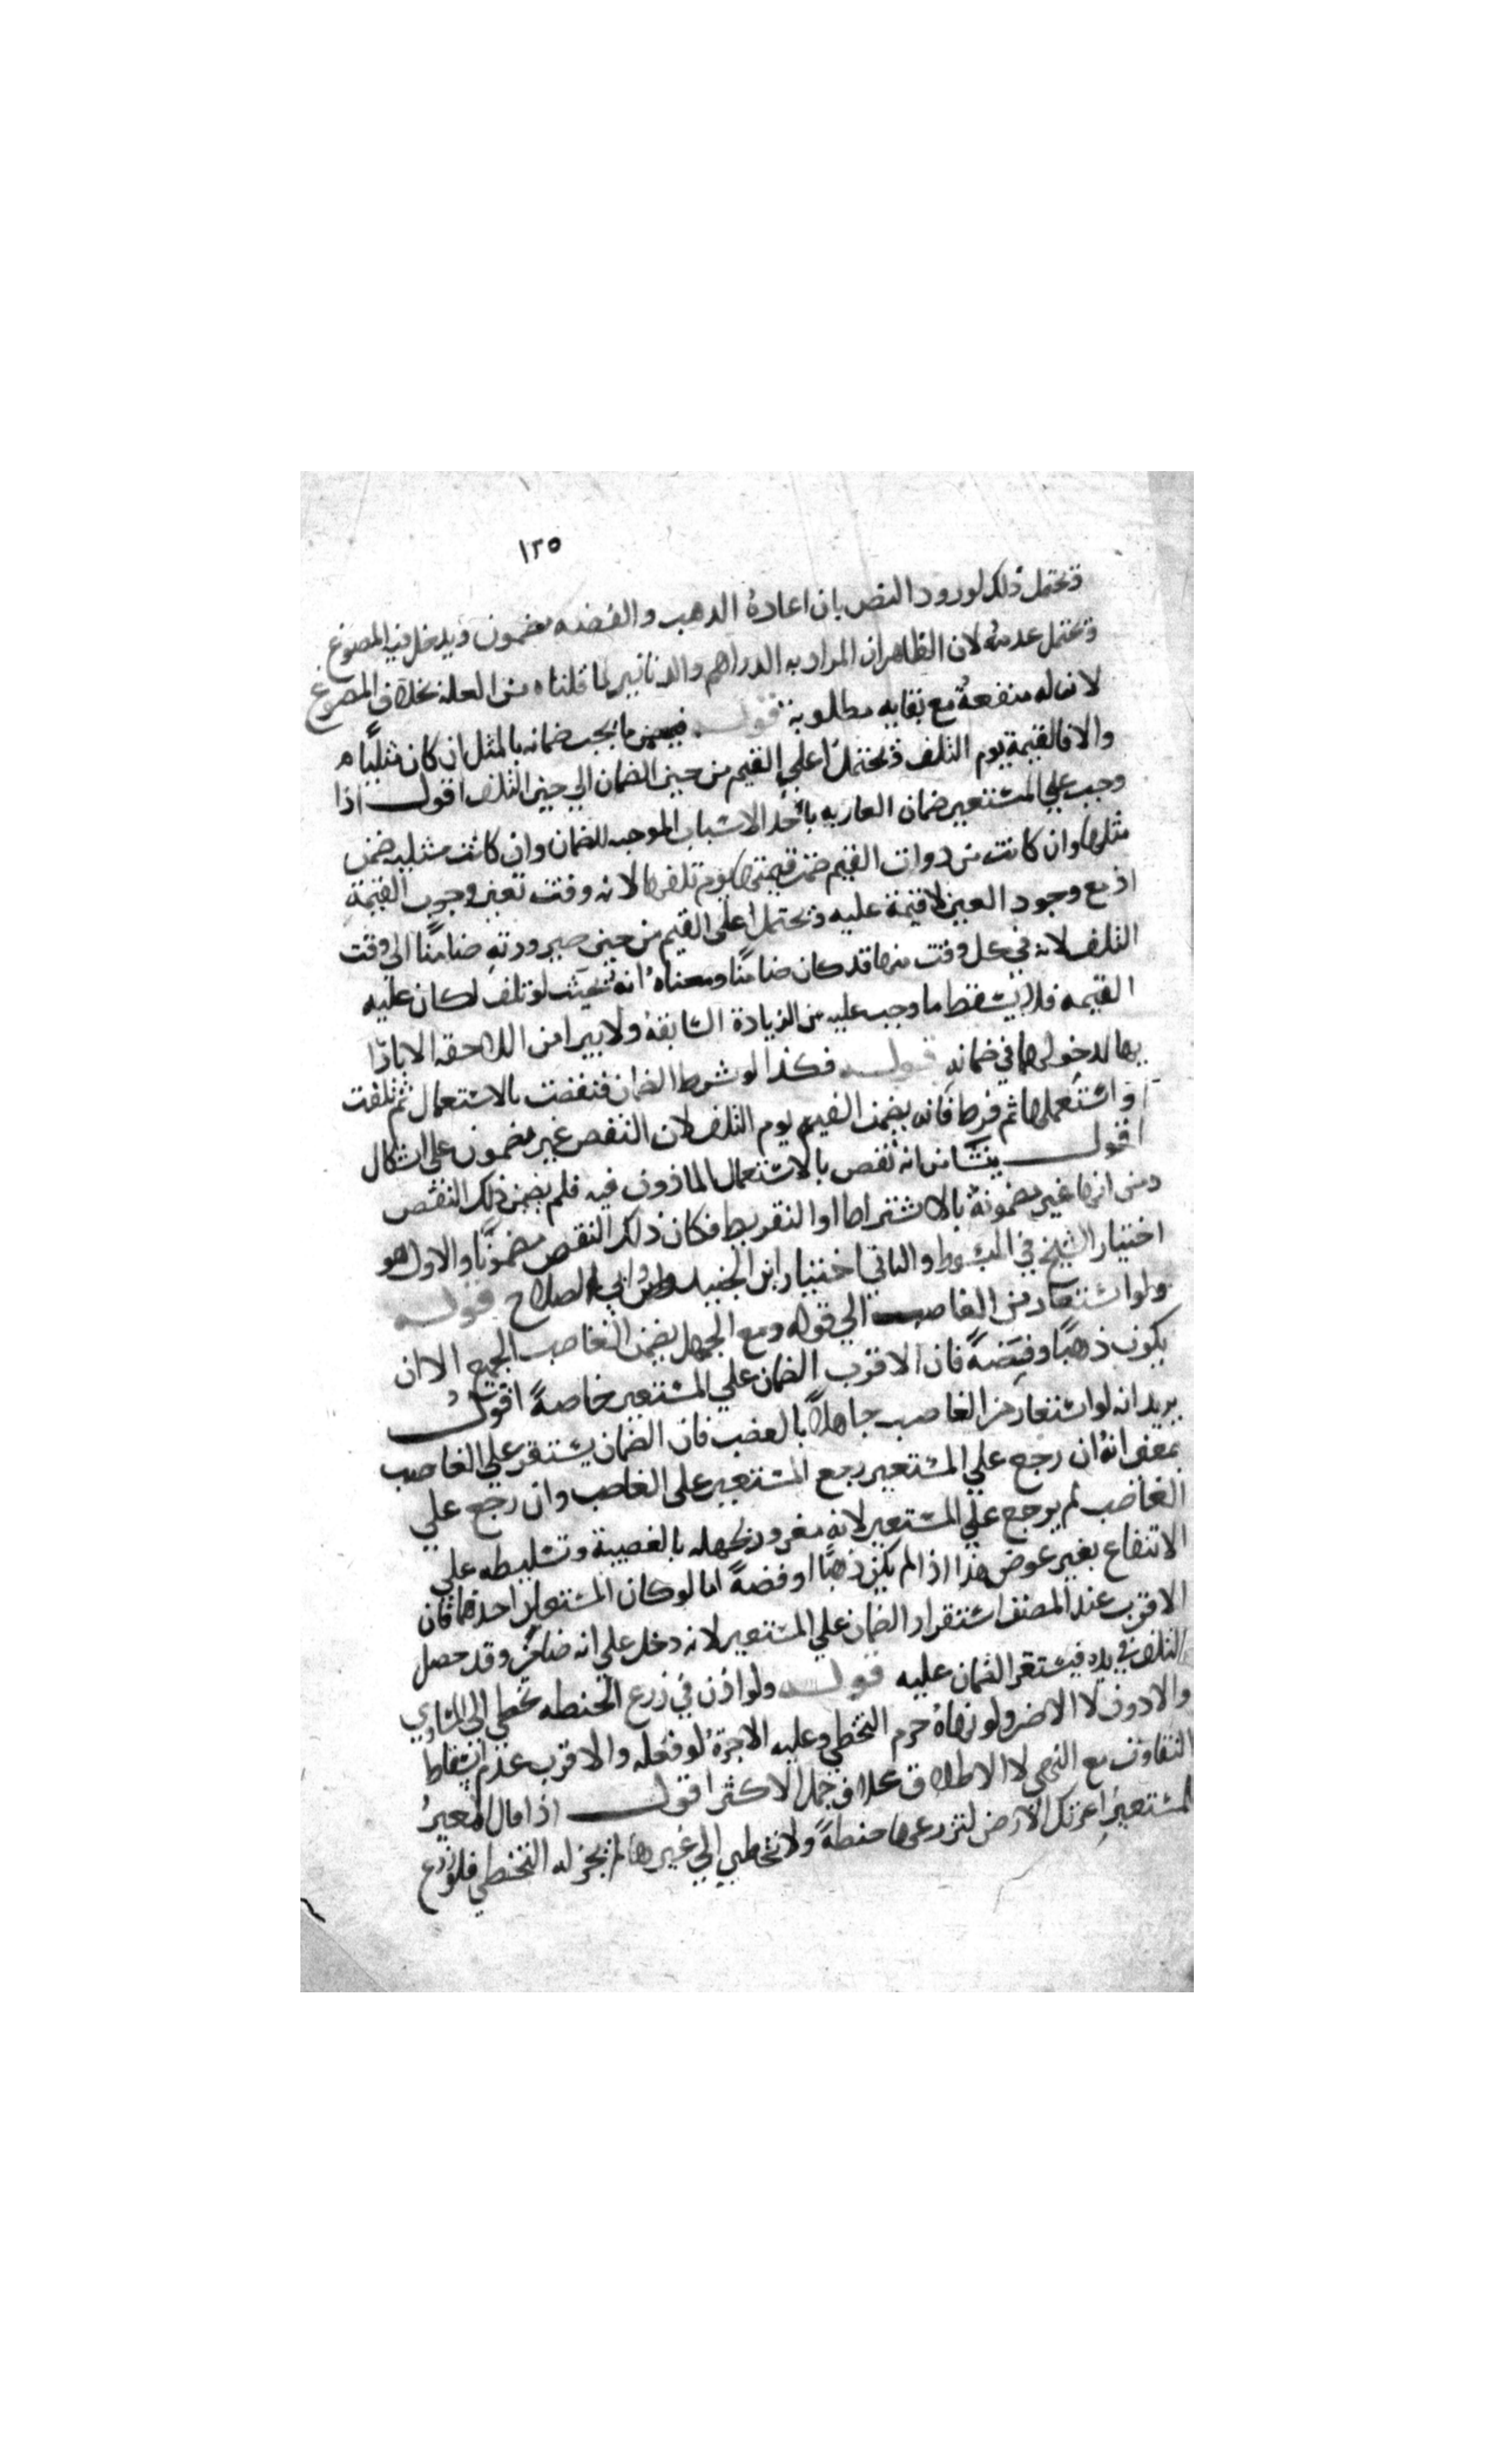 ١٢٥
ويحتمل ذلك لورود النص بان اعادة الدهب والفضه مضمون ويدخل فيه المصوغ
ويحتمل عدمه لان الظاهر ان المراد به الدراهم والدنانير لما قلناه من العلة بخلاف المصوغ
لان له منفعة مع بقايه مطلوبة قوله فيضمن ما يجب ضمانه بالمثل ان كان مثليا
والا فالقيمة يوم التلف ويحتمل اعلي القيم من حين الضمان الي حين التلف اقول اذا
وجب علي المستعير ضمان العاريه باحد الاسباب الموجبه للضمان وان كانت مثليه ضمن
مثلها وان كانت من دوات القيم ضمن قيمتها يوم تلفها لانه وقت تعين وجوب القيمة
اذ مع وجود العين لا قيمة عليه ويحتمل اعلى القيم من حين صيرورته ضامنا الى وقت
التلف لانه في كل وقت منها قد كان ضامنا ومعناه انه بحيث لو تلف لكان عليه
القيمه فلا يسقط ما وجب عليه من الزيادة السابقة ولا يبرا من اللاحقه الا باداا
يها لدخولها في ضمانه قوله فكذا لو شرط الضمان فنقصت بالاستعمال ثم تلفت
او استعملها ثم فرط فانه يضمن القيم يوم التلف لان النقص غير مضمون على اشكال
اقول ينشا من انه نقص بالاستعمال الماذون فيه فلم يضمن ذلك النقص
ومن انها غير مضمونة بالاشتراط او التفريط فكان ذلك النقص مضمونا والاول هو
اختيار الشيخ في المبسوط والثاني اختيار ابن الجنيد وابي الصلاح قوله
ولو استعار من الغاصب الي قوله ومع الجهل يضمن الغاصب الجميع الا ان
يكون ذهبا وفضة فان الاقرب الضمان علي المستعير خاصة اقول
يريد انه لو استعار من الغاصب جاهلا بالغصب فان الضمان يستقر علي الغاصب
بمعنى انه ان رجع علي المستعير رجع المستعير على الغاصب وان رجع علي
الغاصب لم يرجع علي المستعير لانه مغرور لجهله بالغصبية وتسليطه علي
الانتفاع بغير عوض هذا اذا لم يكن ذهبا او فضة اما لو كان المستعار احدهما فان
الاقرب عند المصنف استقرار الضمان علي المستعير لانه دخل علي انه ضامن وقد حصل
التلف في يده فيستقر الضمان عليه قوله ولو اذن في زرع الحنطه تخطي الي المساوي
والادون لا الاضر ولو نهاه حرم التخطي وعليه الاجرة لو فعله والاقرب عدم اسقاط
التفاوت مع النهي لا الاطلاق بخلاف حمل الاكثر اقول اذا قال المعير
للمستعير اعرتك الارض لتزرعها حنطة ولا تتخطي الي غيرها لم يجز له التخطي فلو زرع